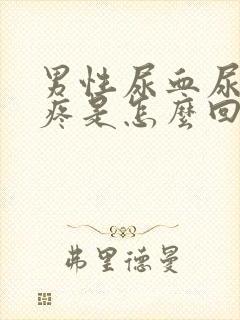 男性尿血尿
疼是怎麼回
弗里德曼